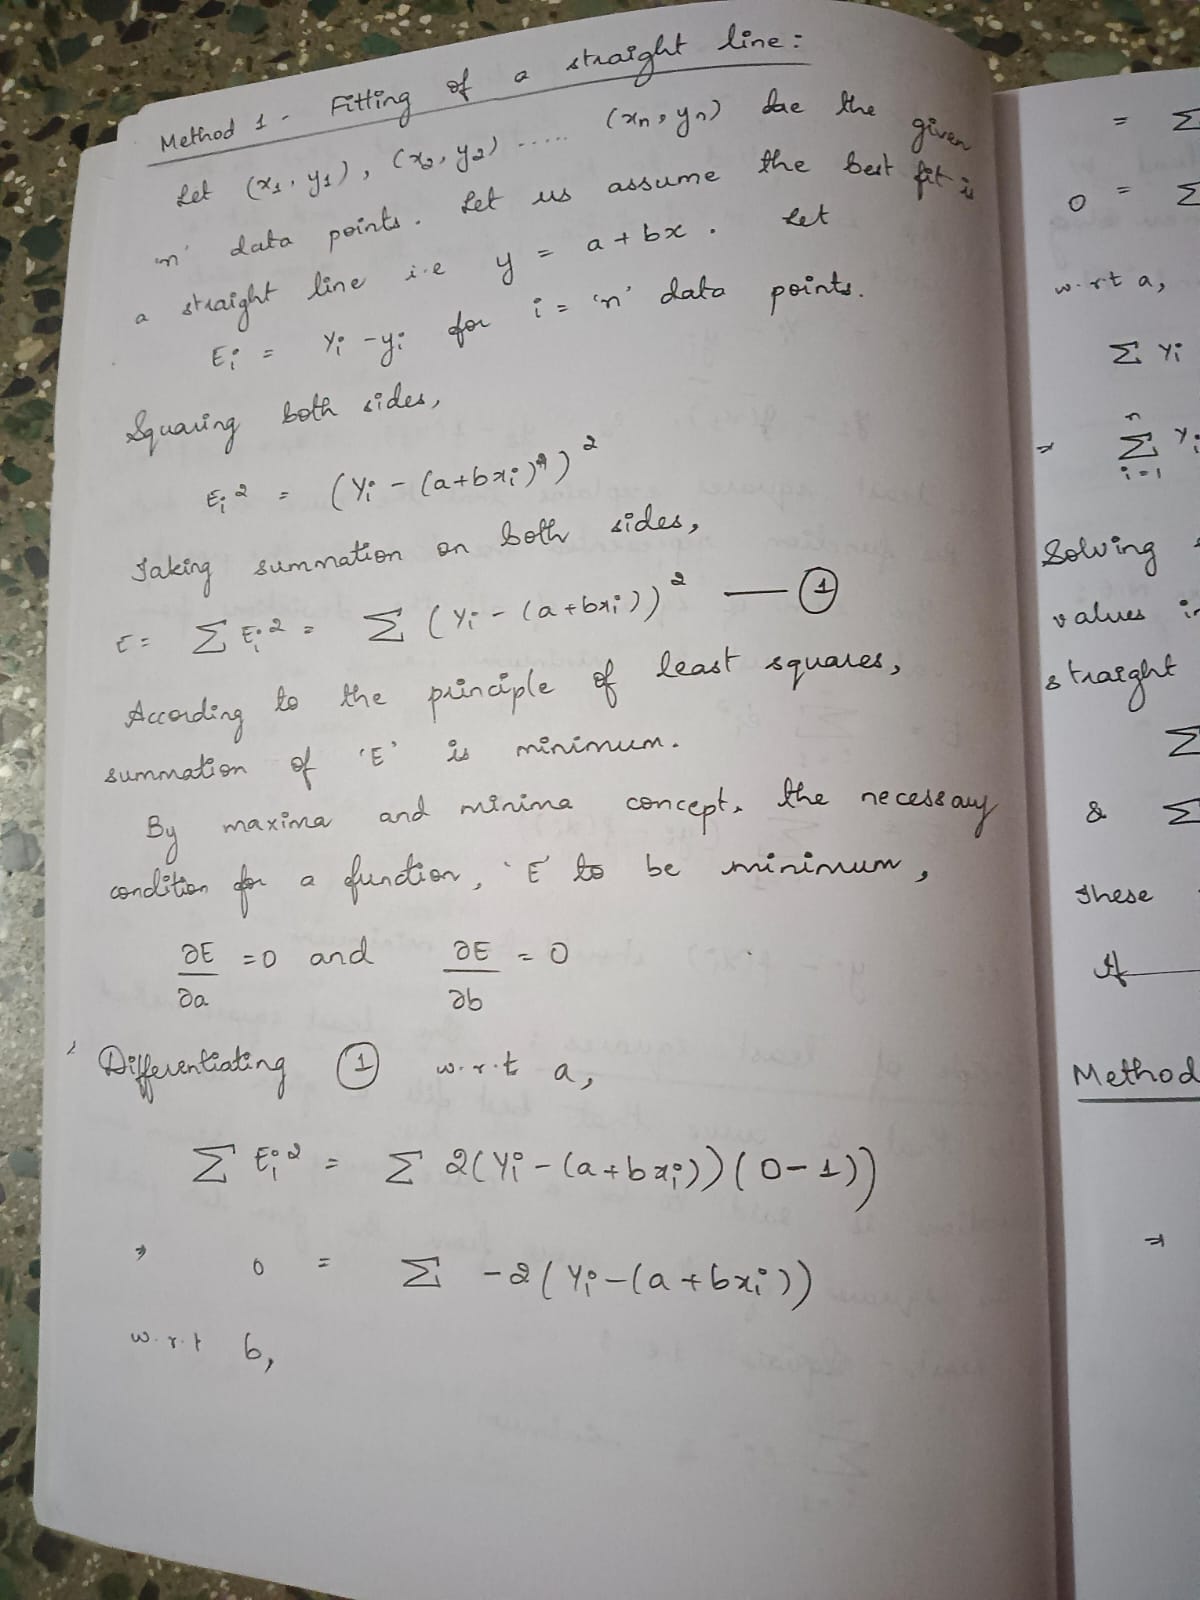 Method 1 - Fitting of a straight line:
Let (x1, y1), (x2, y2) ..... (xn, yn) be the given
'n' data points. Let us assume the best fit is
a straight line i.e y = a + bx. Let
Ei = Yi - yi for i = 'n' data points.
Squaring both sides,
Ei² = (Yi - (a+bxi))²
Taking summation on both sides,
E = ∑ Ei² = ∑ (Yi - (a+bxi))² — ①
According to the principle of least squares,
summation of 'E' is minimum.
By maxima and minima concept, the necessary
condition for a function, 'E' to be minimum,
∂E/∂a = 0 and ∂E/∂b = 0
Differentiating ① w.r.t a,
∑ Ei² = ∑ 2(Yi - (a+bxi))(0-1))
⇒ 0 = ∑ -2(Yi - (a+bxi))
w.r.t b,
= ∑
0 = ∑
w.r.t a,
∑ Yi
⇒ n∑i=1 Yi
Solving
values
straight
∑
& ∑
These
Method
⇒